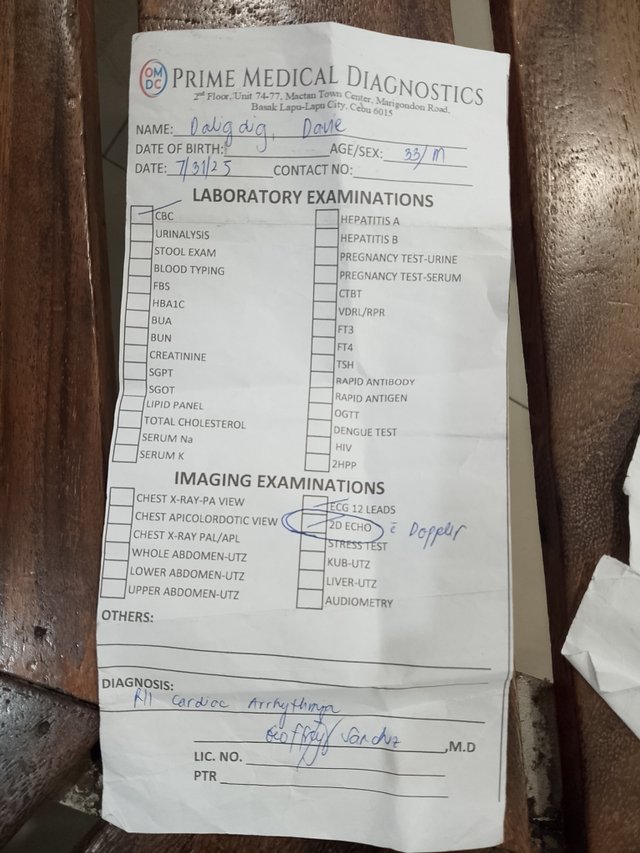 OM
DC
PRIME MEDICAL DIAGNOSTICS
2nd Floor, Unit 74-77, Mactan Town Center, Marigondon Road,
Basak Lapu-Lapu City, Cebu 6015
NAME: Daligdig, Dave
DATE OF BIRTH: AGE/SEX: 33/M
DATE: 7/31/25 CONTACT NO:
LABORATORY EXAMINATIONS
CBC
URINALYSIS
STOOL EXAM
BLOOD TYPING
FBS
HBA1C
BUA
BUN
CREATININE
SGPT
SGOT
LIPID PANEL
TOTAL CHOLESTEROL
SERUM Na
SERUM K
HEPATITIS A
HEPATITIS B
PREGNANCY TEST-URINE
PREGNANCY TEST-SERUM
CTBT
VDRL/RPR
FT3
FT4
TSH
RAPID ANTIBODY
RAPID ANTIGEN
OGTT
DENGUE TEST
HIV
2HPP
IMAGING EXAMINATIONS
CHEST X-RAY-PA VIEW
CHEST APICOLORDOTIC VIEW
CHEST X-RAY PAL/APL
WHOLE ABDOMEN-UTZ
LOWER ABDOMEN-UTZ
UPPER ABDOMEN-UTZ
ECG 12 LEADS
2D ECHO c̄ Doppler
STRESS TEST
KUB-UTZ
LIVER-UTZ
AUDIOMETRY
OTHERS:
DIAGNOSIS:
R/I Cardiac Arrhythmia
Geoffrey Sanchez ,M.D
LIC. NO.
PTR